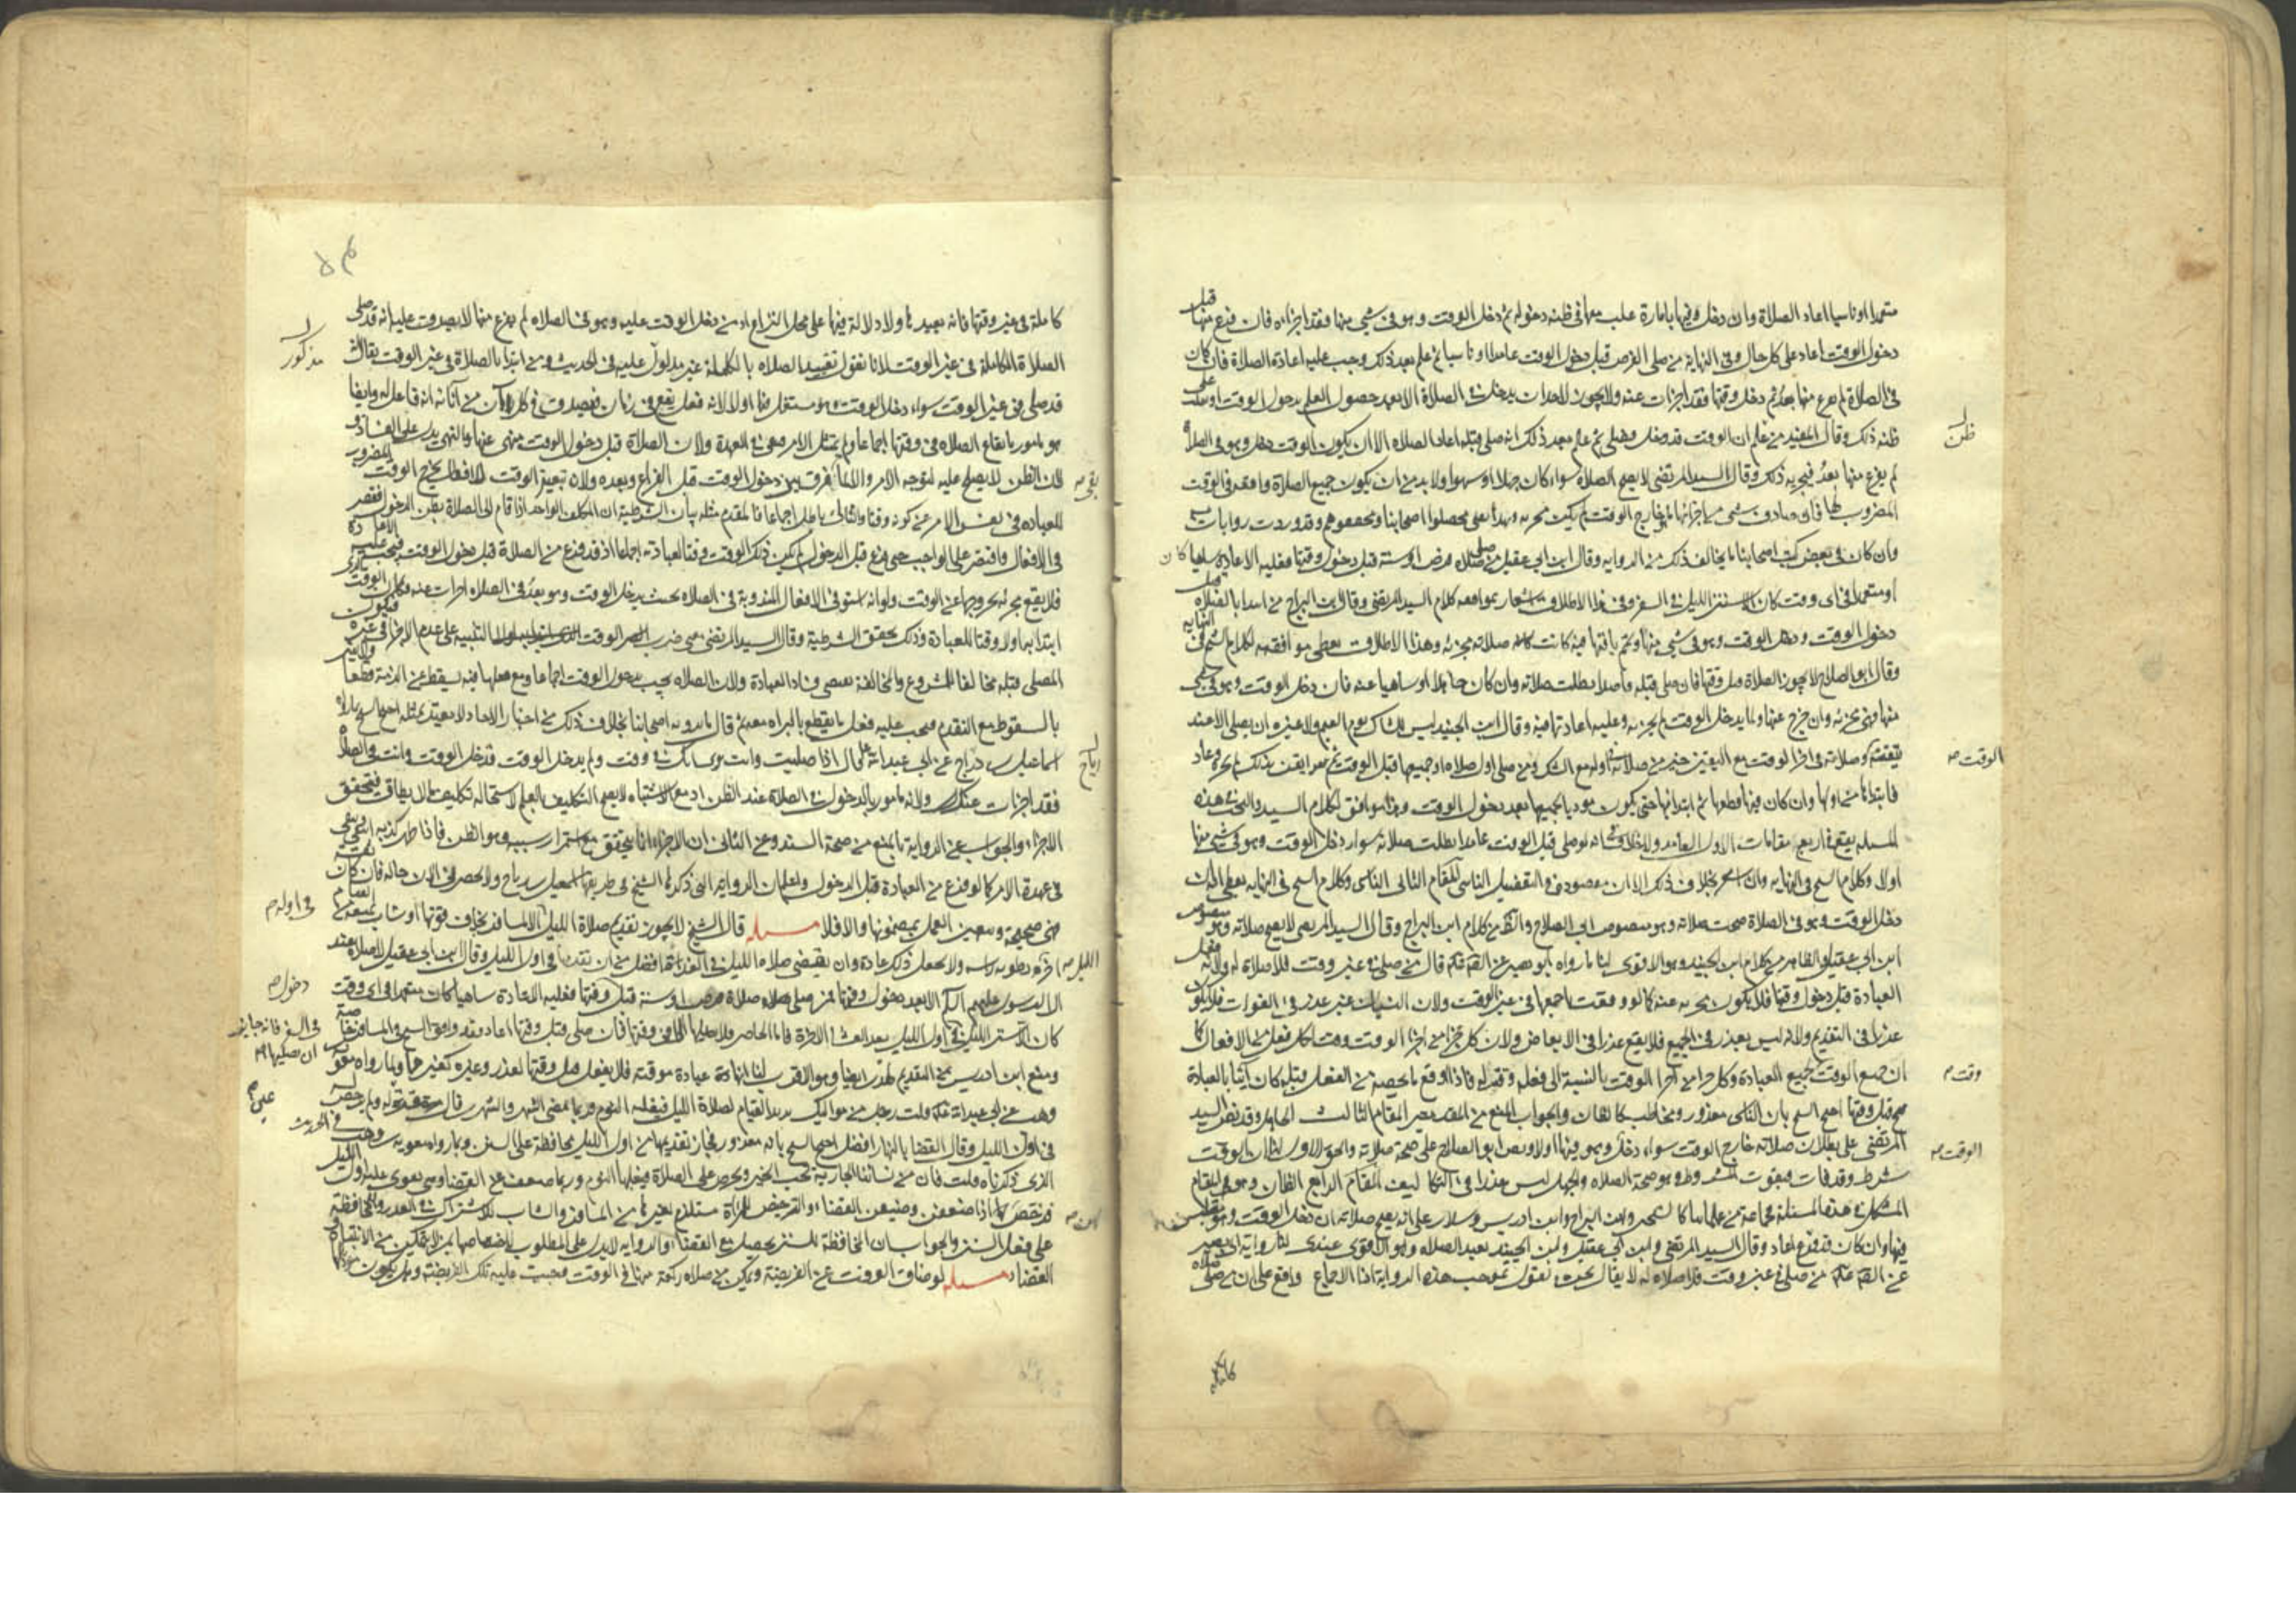 متعمدا او ناسيا اعاد الصلاة وان دخل فيها بامارة غلب معها في ظنه دخوله ثم دخل الوقت وهو في شي منها فقد اجزاه فان فرغ منها قبل
دخول الوقت اعاد على كل حال وفي النهاية من صلى الفرض قبل دخول الوقت عامدا او ناسيا ثم علم بعد ذلك وجب عليه اعادة الصلاة فان كان
في الصلاة لم يفرغ منها بعد ثم دخل وقتها فقد اجزات عنه ولا يجوز لاحد ان يدخل في الصلاة الا بعد حصول العلم بدخول الوقت او على
ظن
ظنه ذلك وقال المفيد من ظن ان الوقت قد دخل وصلى ثم علم بعد ذلك انه صلى قبله اعاد الصلاه الا ان يكون الوقت دخل وهو في الصلاة
لم يفرغ منها بعد فيجزيه ذلك وقال السيد المرتضى لا يصح الصلاه سواء كان جهلا او سهوا ولا بد من ان يكون جميع الصلاة واقعة في الوقت
المضروب لها فان صادف شي من اجزائها خارج الوقت لم يكن مجزيه وبهذا يفتي محصلوا اصحابنا ومحققوهم وقد وردت روايات به
وان كان في بعض كتب اصحابنا ما يخالف ذلك من الروايه وقال ابن ابي عقيل من صلى صلاه فرض او سنة قبل دخول وقتها فعليه الاعادة ساهيا كان
او متعمدا في اي وقت كان الا سنن الليل في السفر وفي هذا الاطلاق اشعار بموافقه كلام السيد المرتضى وقال ابن البراج من ابتدا بالصلاه قبل
دخول الوقت ودخل الوقت وهو في شي منها وتم باقيها فيه كانت صلاته مجزئه وهذا الاطلاق يعطي موافقته لكلام الشيخ في النهايه
وقال ابو الصلاح لا يجوز الصلاة قبل وقتها فان صلى قبله قاصدا بطلت صلاته وان كان جاهلا او ساهيا عنه فان دخل الوقت وهو في شي
منها فهي مجزئه وان خرج عنها ولما يدخل الوقت لم يجزيه وعليه اعادتها فيه وقال ابن الجنيد ليس للشاك يوم الغيم ولا غيره ان يصلي الا عند
الوقت صح
تيقنه وصلاته في اخر الوقت مع اليقين خير من صلاته في اوله مع الشك ومن صلى اول صلاه او جميعها قبل الوقت ثم ايقن بذلك لم يجزه وعاد
فابتدا من اولها وان كان فيها قطعها ثم ابتداها حتى يكون موديا لجميعها بعد دخول الوقت وهذا موافق لكلام السيد والبحث في هذه
المسئله يقع في اربع مقامات الاول العامد ولا خلاف في انه لو صلى قبل الوقت عامدا بطلت صلاته سواء دخل الوقت وهو في شي منها
اولا وكلام الشيخ في النهايه وان اشعر بخلاف ذلك الا ان مقصوده التفصيل الناسي المقام الثاني الناسي وكلام الشيخ في النهايه يعطي انه ان
دخل الوقت وهو في الصلاة صحت صلاته وهو منصوص ابي الصلاح والظاهر من كلام ابن البراج وقال السيد المرتضى لا يصح صلاته وهو منصوص
ابن ابي عقيل والظاهر من كلام ابن الجنيد وهو الاقوى لنا ما رواه ابو بصير عن الصادق قال من صلى في غير وقت فلا صلاة له ولانه فعل
العبادة قبل دخول وقتها فلا يكون مجزيه عنه كما لو وقعت باجمعها في غير الوقت ولان النسيان غير عذر في الفوات فلا يكون
عذرا في التقديم ولانه ليس بعذر في الجميع فلا يقع عذرا في الابعاض ولان كل جزء من اجزاء الوقت وقت لكل فعل من الافعال كما
وقت صح
ان جميع الوقت لجميع العبادة وكل جزء من اجزاء الوقت بالنسبة الى فعله وقته له فاذا اوقع ما يخصه من الفعل قبله كان آتيا بالعبادة
قبل وقتها احتج الشيخ بان الناسي معذور ومخاطب كالظان والجواب المنع من المقدمتين المقام الثالث الجاهل وقد نص السيد
الوقت صح
المرتضى على بطلان صلاته خارج الوقت سواء دخل وهو فيها اولا ونص ابو الصلاح على صحة صلاته والحق الاول لنا ان الوقت
شرط وقد فات فيفوت المشروط وهو صحة الصلاه والجهل ليس عذرا في التكاليف المقام الرابع الظان وهو في المقام
المشكل في هذه المسئلة فجماعة من علمائنا كالشيخين وابن البراج وابن ادريس وسلار على انه يصح صلاته ان دخل الوقت وهو متلبس
فيها وان كان قد فرغ اعاد وقال السيد المرتضى وابن ابي عقيل وابن الجنيد يعيد الصلاه وهو الاقوى عندي لنا رواية ابي بصير
عن الصادق من صلى في غير وقت فلا صلاه له لا يقال نحن نقول بموجب هذه الروايه اذا الاجماع واقع على ان من صلى صلاة
كاملة
كاملة في غير وقتها فانه يعيدها ولا دلالة فيها على محل النزاع اذ من دخل الوقت عليه وهو في الصلاه لم يفرغ منها لا يصدق عليه انه قد صلى
مذكور
الصلاة الكاملة في غير الوقت لانا نقول تقييد الصلاه بالكاملة غير مدلول عليه في الحديث ومن ابتدا بالصلاة في غير الوقت يقال انه
قد صلى في غير الوقت سواء دخل الوقت وهو مستغل بها اولا لانه فعل يقع في زمان فيصدق في كل آن من آناته انه فاعل له وايضا
هو مامور بايقاع الصلاه في وقتها اجماعا ولم يمتثل الامر فبقي في العهدة ولان الصلاة قبل دخول الوقت منهى عنها والنهي يدل على الفساد
لان الظن لا يصلح عليه لتوجه الامر والا لما فرق بين دخول الوقت قبل الفراغ وبعده ولان تعيين الوقت للافعال يخرج الوقت المضروب
للعباده في نفس الامر عن كونه وقتا والتالي باطل اجماعا فالمقدم مثله بيان الشرطية ان المكلف الواحد اذا قام الى الصلاة بظن الدخول فقصر
في الافعال واقتصر على الواجب حتى فرغ قبل الدخول لم يكن ذلك الوقت وقتا لعبادته اجماعا اذ قد فرغ من الصلاة قبل دخول الوقت فيجب عليه الاعادة
فلا يقع مجزئه لخروجها عن الوقت ولو انه استوفى الافعال المندوبة في الصلاه بحيث يدخل الوقت وهو بعد في الصلاه اجزات عنه
ابتدا بها اولا وقتا للعبادة وذلك تحقق الشرطية وقال السيد المرتضى معنى ضرب الوقت التنبيه على عدم الاجزاء في غيره
المصلي قبله مخالفا للمشروع والمخالفة تقتضي فساد العبادة ولان الصلاه تجب بدخول الوقت اجماعا ومع فعلها فيه يسقط عن الذمة قطعا
بالسقوط مع التقدم فيجب عليه فعل ما يقطع بالبراه معه ثم قال ما يرويه اصحابنا بخلاف ذلك من اخبار الاحاد لا يعتد بمثله احتج الشيخ بما رواه
رياح
اسماعيل بن رباح عن ابي عبدالله قال اذا صليت وانت ترى انك في وقت ولم يدخل الوقت فدخل الوقت وانت في الصلاة
فقد اجزات عنك ولانه مامور بالدخول في الصلاة عند الظن اذ مع الاشتباه لا يصح التكليف بالعلم لاستحاله تكليف ما لا يطاق فيتحقق
الاجزاء والجواب عن الرواية بالمنع من صحة السند وعن الثاني ان الاجزاء انما يتحقق مع استمرار سببه وهو الظن فاذا ظهر كذبه انتفى بقي
في عهدة الامر كما لو فرغ من العبادة قبل الدخول واعلم ان الرواية التي ذكرها الشيخ في طريقها اسمعيل بن رياح ولا يحضرني الان حاله فان كان ثقة
في اوله م
فهي صحيحة ويتعين العمل بمضمونها والا فلا مسئله قال الشيخ لا يجوز تقديم صلاة الليل الا لمسافر يخاف فوتها او شاب يمنعه من القيام
الليل صح
آخره رطوبة راسه ولا يجعل ذلك عادة وان يقتضي صلاه الليل في الغد افضل من ان يقدمها في اول الليل وقال ابن ابي عقيل لا صلاه عند
دخول صح
ال الرسول عليهم السلم الا بعد دخول وقتها فمن صلى صلاة فرض او سنة قبل وقتها فعليه الاعادة ساهيا كان متعمدا في اي وقت
في السفر فانه جايز ان يصليها
كان الا سنن الليل في اول الليل بعد العشا الاخرة فاما الحاضر فلا يصليها الا في وقتها فان صلى قبل وقتها اعاد
ومنع ابن ادريس من التقديم لهذين ايضا وهو الاقرب لنا انها عبادة موقته فلا يفعل قبل وقتها لعذر وغيره كغيرها ولما رواه معوية
وهب عن ابي عبدالله قلت رجل من مواليك يريد القيام لصلاة الليل فيغلبه النوم فربما قضى الشهر والشهرين قال قرة عين له ولم يرخص
في الحديث
في اول الليل وقال القضا بالنهار افضل احتج الشيخ بانه معذور فجاز تقديمها من اول الليل محافظة على السنن وبما رواه معوية بن وهب
الذي ذكرناه قلت فان من نسائنا الجارية تحب الخير وتحرص على الصلاة فيغلبها النوم وربما ضعفت عن القضاء وهي تقوى عليه اول الليل
فرخص لها اذا ضعفن وضيعن القضاء والترخيص للمراة مستلزم لغيرها من المسافر والشاب للاشتراك في العذر والمحافظة
على فعل السنن والجواب ان المحافظة للسنن يحصل مع القضا والروايه لا يدل على المطلوب لاختصاصها بمن لا يتمكن من الانتباه
القضاء مسئله لو ضاق الوقت عن الفريضة وتمكن من صلاه ركعة منها في الوقت وجبت عليه تلك الفريضة وهل يكون